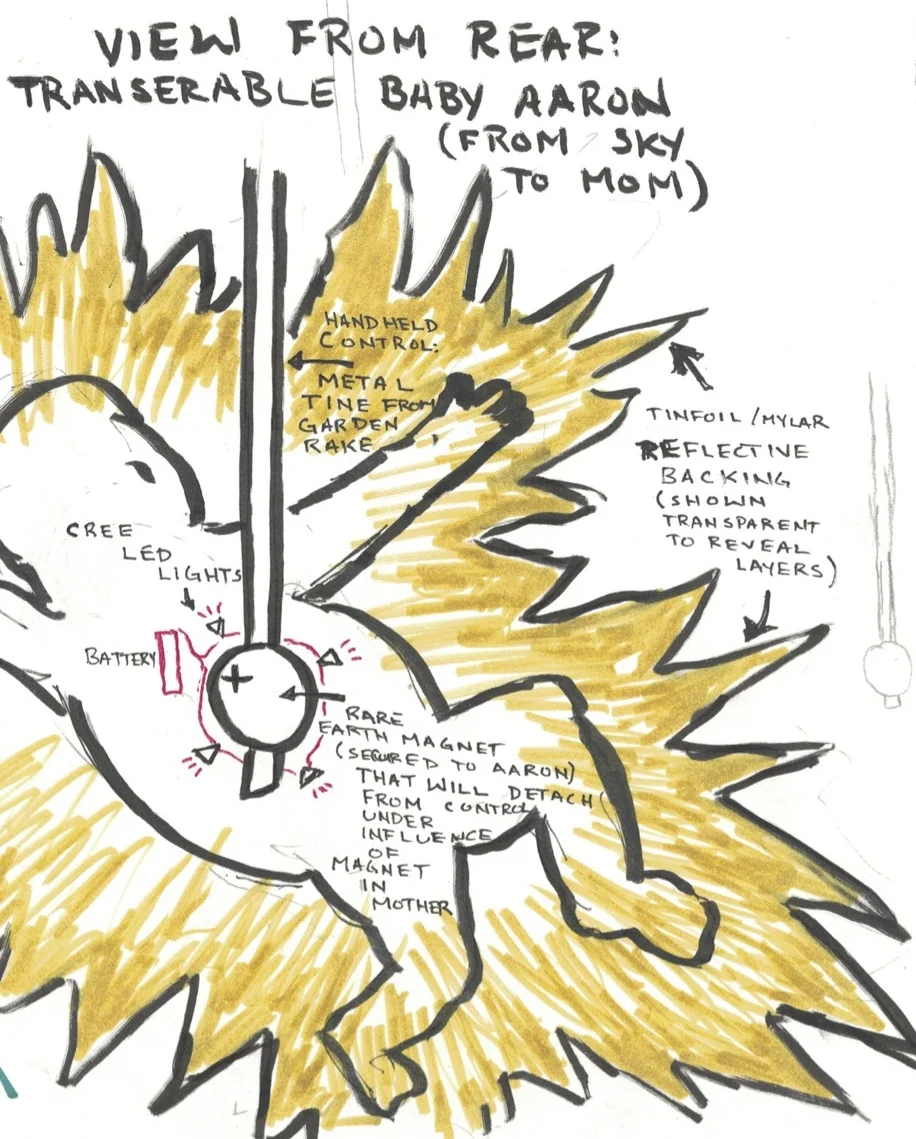 VIEW FROM REAR:
TRANSERABLE BABY AARON
(FROM SKY
TO MOM)
HANDHELD
CONTROL:
METAL
TINE FROM
GARDEN
RAKE
TINFOIL/MYLAR
REFLECTIVE
BACKING
(SHOWN
TRANSPARENT
TO REVEAL
LAYERS)
CREE
LED
LIGHTS
BATTERY
+
RARE
EARTH MAGNET
(SECURED TO AARON)
THAT WILL DETACH
FROM CONTROL
UNDER
INFLUENCE
OF
MAGNET
IN
MOTHER